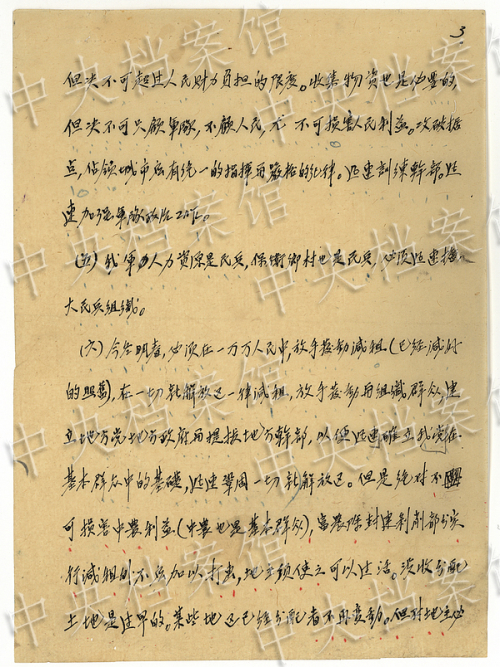 3
但决不可超过人民财力负担的限度。收集物资也是必要的，
但决不可只顾军队，不顾人民，尤不可损害人民利益。攻破据
点，占领城市应有统一的指挥而严格的纪律。迅速训练干部。迅
速加强军队政治工作。
（五）我军的人力资源是民兵，保卫乡村也是民兵，必须迅速扩
大民兵组织。
（六）今冬明春，必须在一万万人民中，放手发动减租（已经减好
的照旧），在一切新解放区一律减租，放手发动与组织群众，建
立地方党地方政府与提拔地方干部，以便迅速确立我党在
基本群众中的基础，迅速巩固一切新解放区。但是绝对不
可损害中农利益（中农也是基本群众），富农除封建剥削部分实
行减租外不应加以打击，地主须使之可以生活。没收分配
土地是过早的。某些地区已经分配者不再变动。但对地主必
中央档案馆